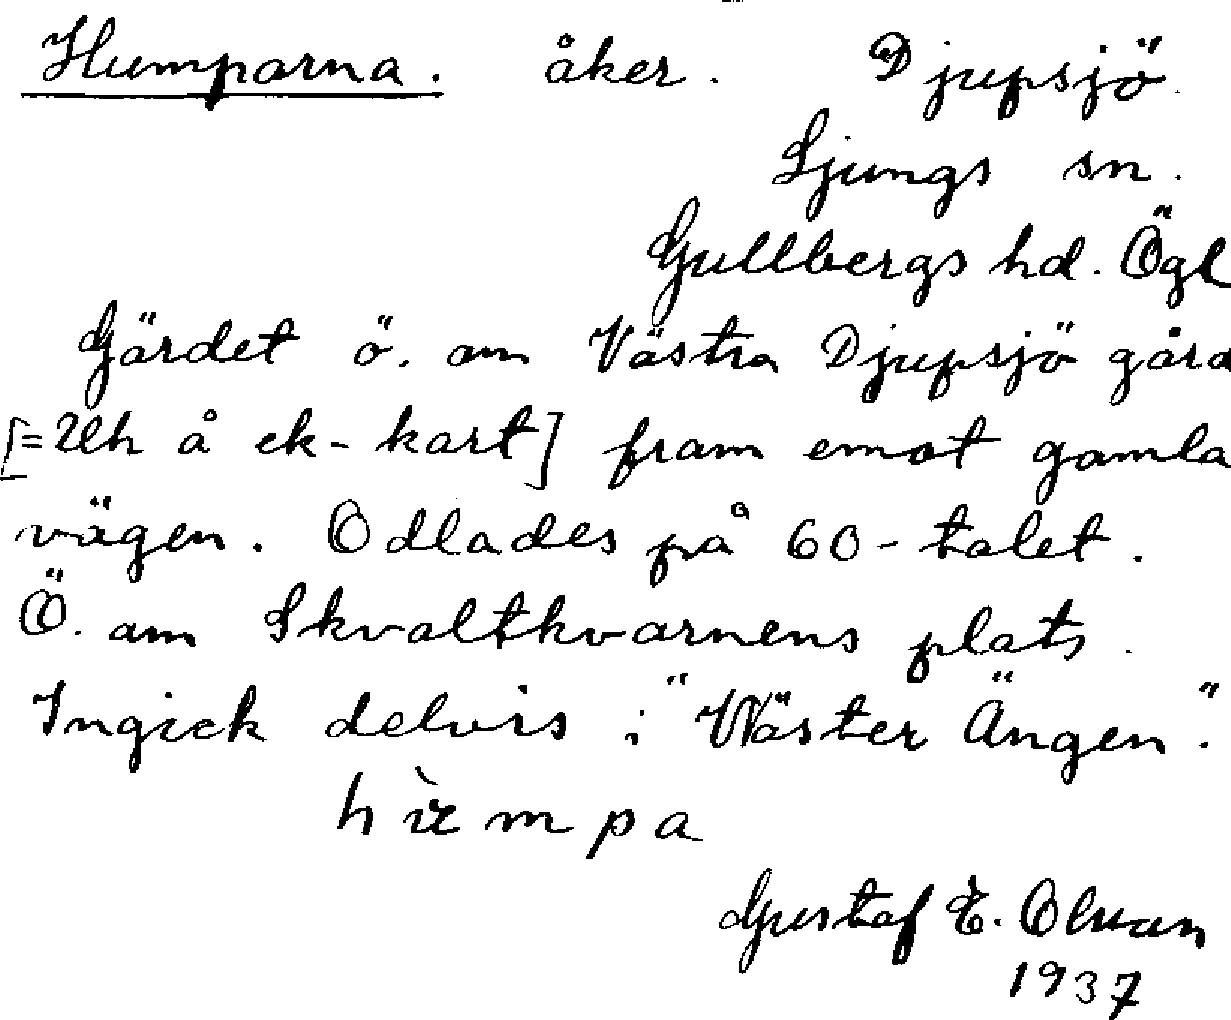 Humparna. åker. Djupsjö.
Ljungs sn.
Gullbergs hd. Ögl
Gärdet ö. om Västra Djupsjö gård
[= 2Eh å ek-kart] fram emot gamla
vägen. Odlades på 60-talet.
Ö. om Skvaltkvarnens plats.
Ingick delvis i "Wäster Ängen".
Gustaf E.
1937